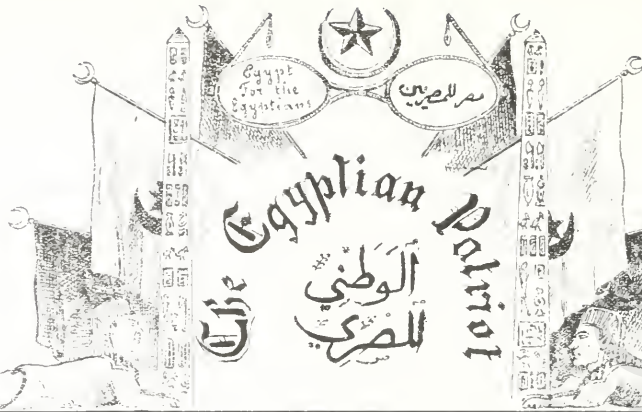 Egypt
For the
Egyptians
مصر للمصريين
The Egyptian Patriot
الوطني
المصري